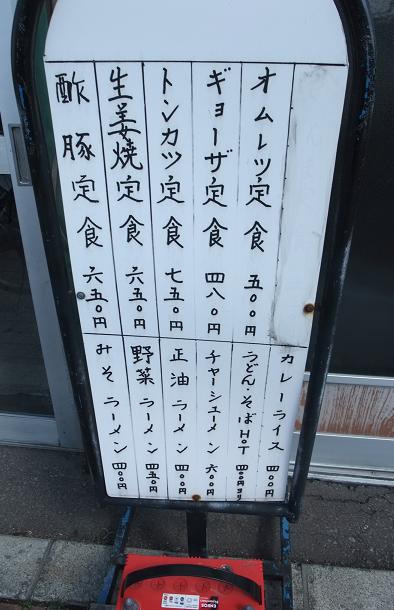 オムレツ定食 五〇〇円
ギョーザ定食 四八〇円
トンカツ定食 七五〇円
生姜焼定食 六五〇円
酢豚定食 六五〇円
カレーライス 四〇〇円
うどん・そばHOT 四〇〇円ヨリ
チャーシューメン 六〇〇円
正油ラーメン 四〇〇円
野菜ラーメン 四五〇円
みそラーメン 四〇〇円
ENEOS